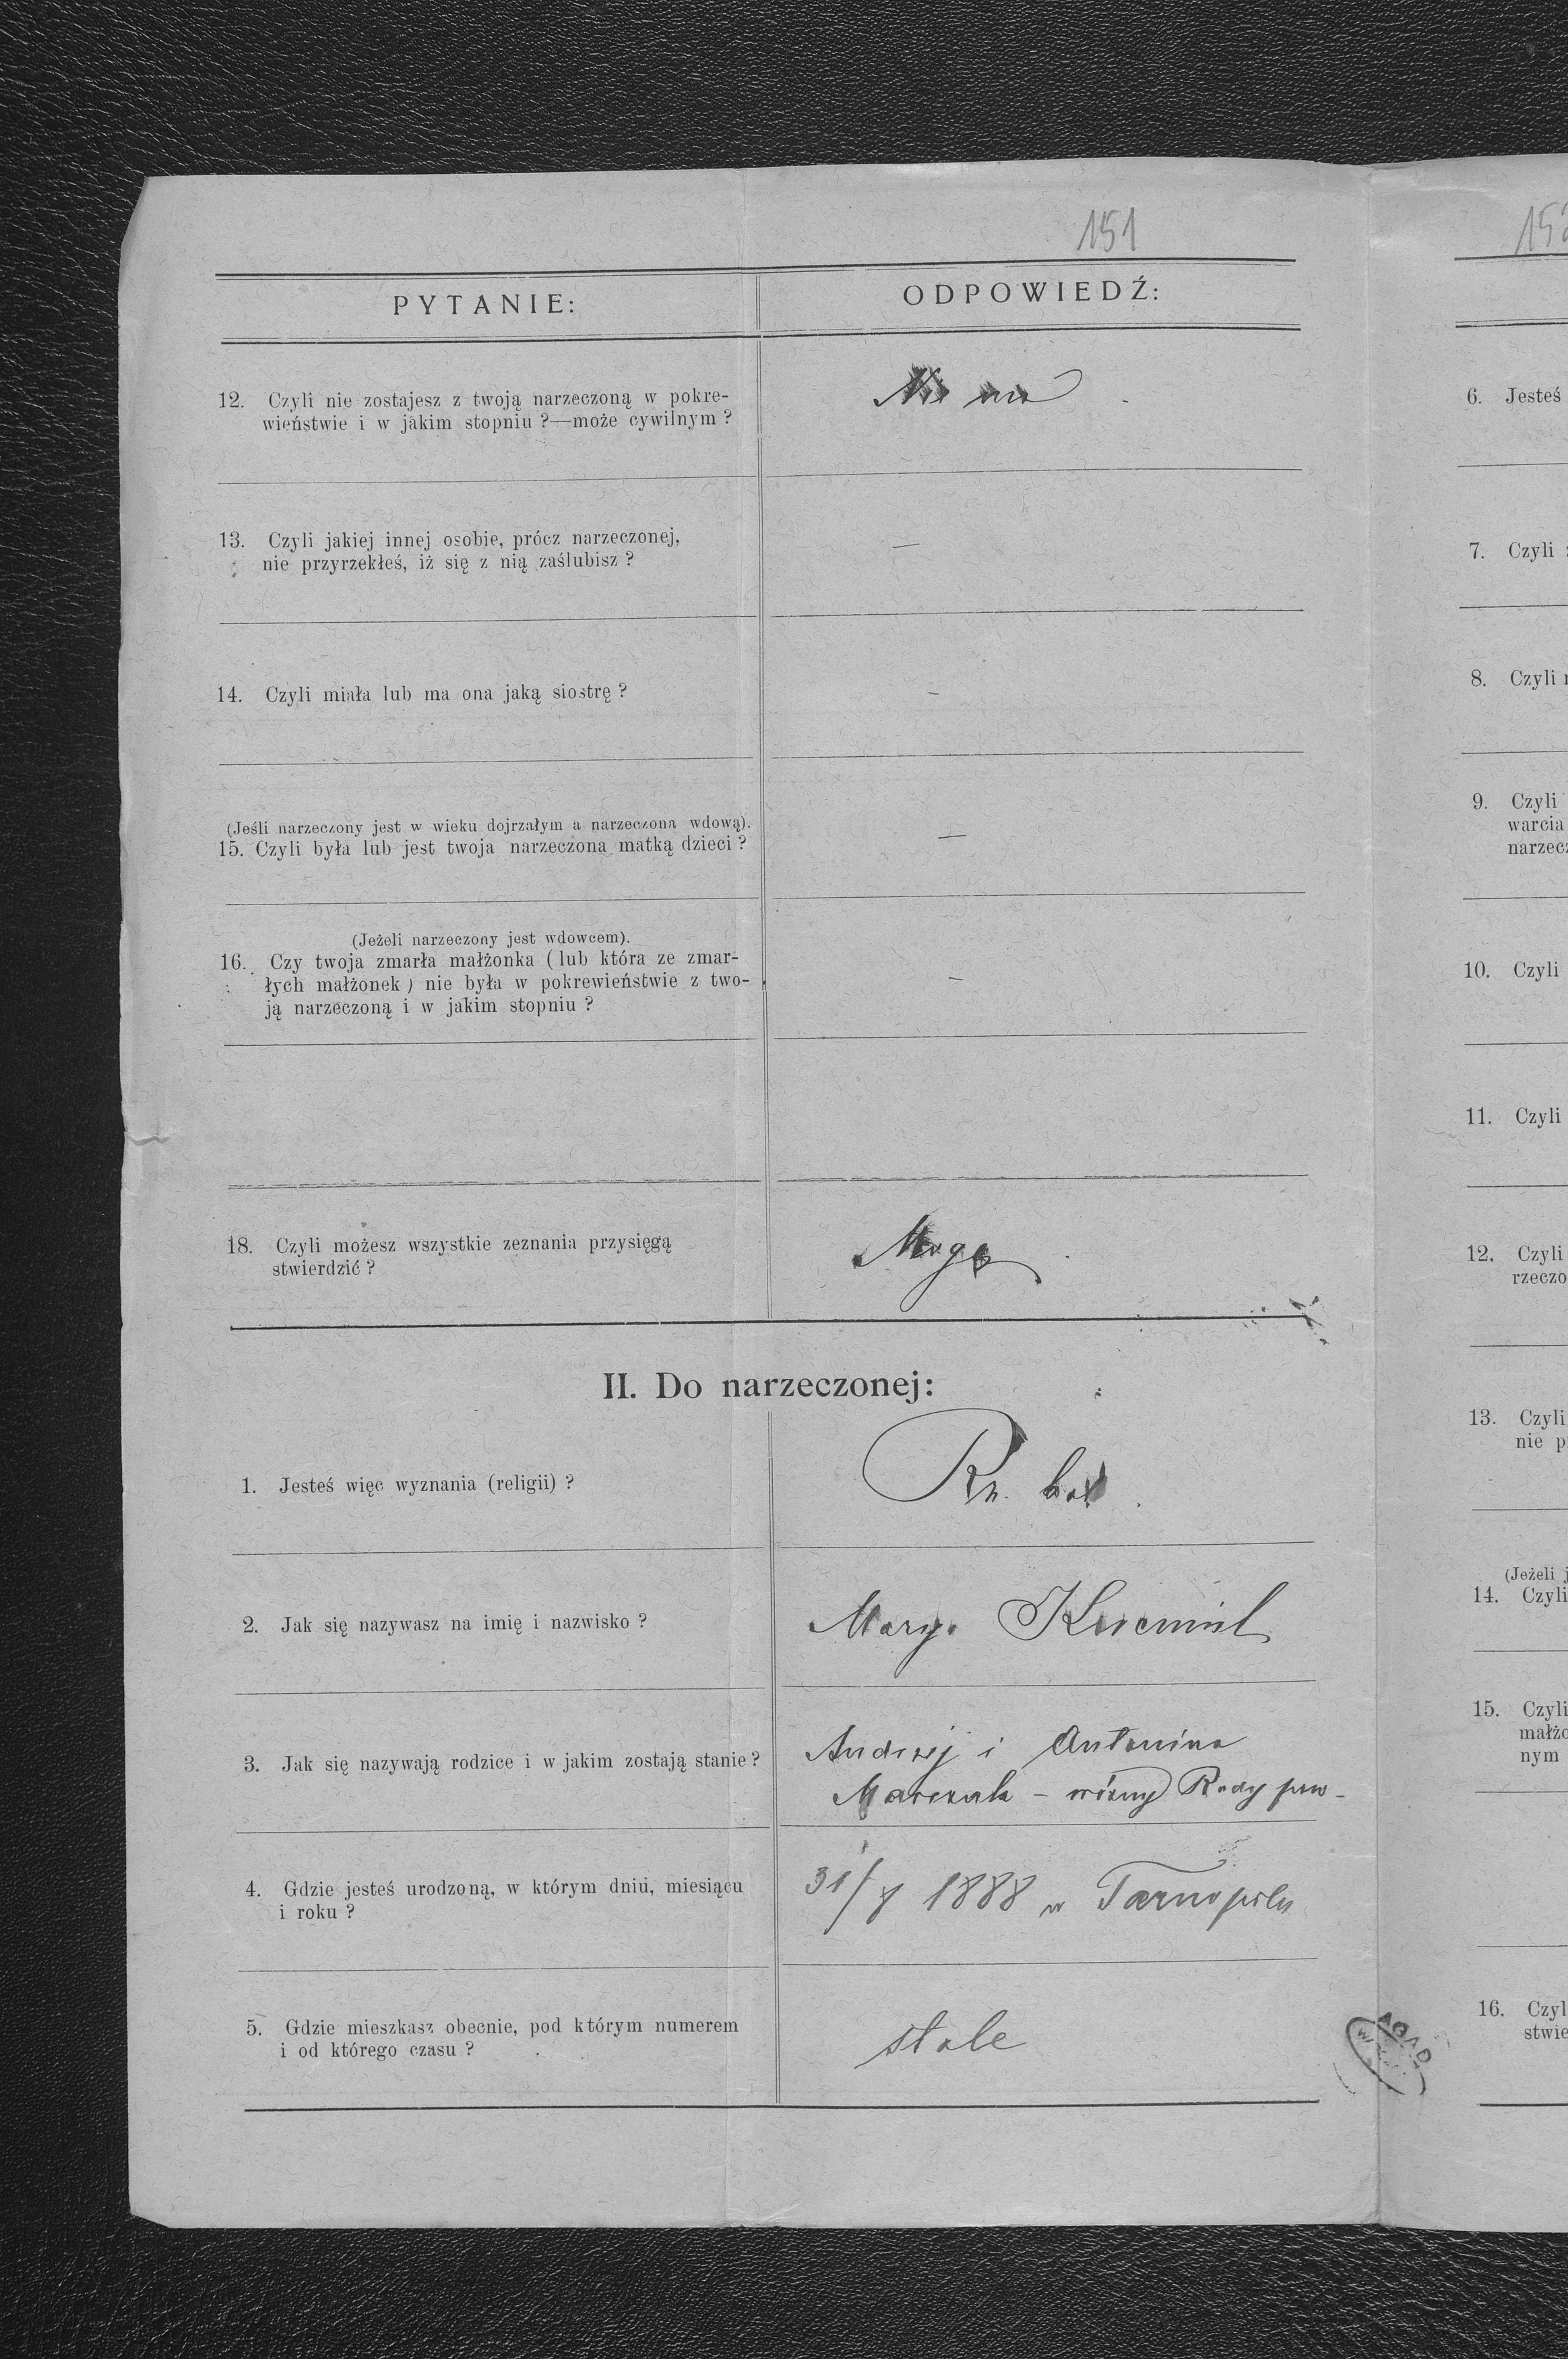 151
PYTANIE:
ODPOWIEDŹ:
12. Czyli nie zostajesz z twoją narzeczoną w pokre-
wieństwie i w jakim stopniu ?—może cywilnym ?
Nie
13. Czyli jakiej innej osobie, prócz narzeczonej,
nie przyrzekłeś, iż się z nią zaślubisz ?
—
14. Czyli miała lub ma ona jaką siostrę ?
–
(Jeśli narzeczony jest w wieku dojrzałym a narzeczona wdową).
15. Czyli była lub jest twoja narzeczona matką dzieci ?
—
(Jeżeli narzeczony jest wdowcem).
16. Czy twoja zmarła małżonka (lub która ze zmar-
łych małżonek) nie była w pokrewieństwie z two-
ją narzeczoną i w jakim stopniu ?
–
18. Czyli możesz wszystkie zeznania przysięgą
stwierdzić ?
Mogę
II. Do narzeczonej:
1. Jesteś więc wyznania (religii) ?
Rz. kat.
2. Jak się nazywasz na imię i nazwisko ?
Marya
3. Jak się nazywają rodzice i w jakim zostają stanie ?
Andrzej i Antonina
– woźny Rady pow-
4. Gdzie jesteś urodzoną, w którym dniu, miesiącu
i roku ?
31/8 1888 w Tarnopolu
5. Gdzie mieszkasz obecnie, pod którym numerem
i od którego czasu ?
stale
AGAD
6. Jesteś
7. Czyli
8. Czyli
9. Czyli
warcia
10. Czyli
11. Czyli
12. Czyli
13. Czyli
nie
(Jeżeli
14. Czyli
15. Czyli
nym
16.